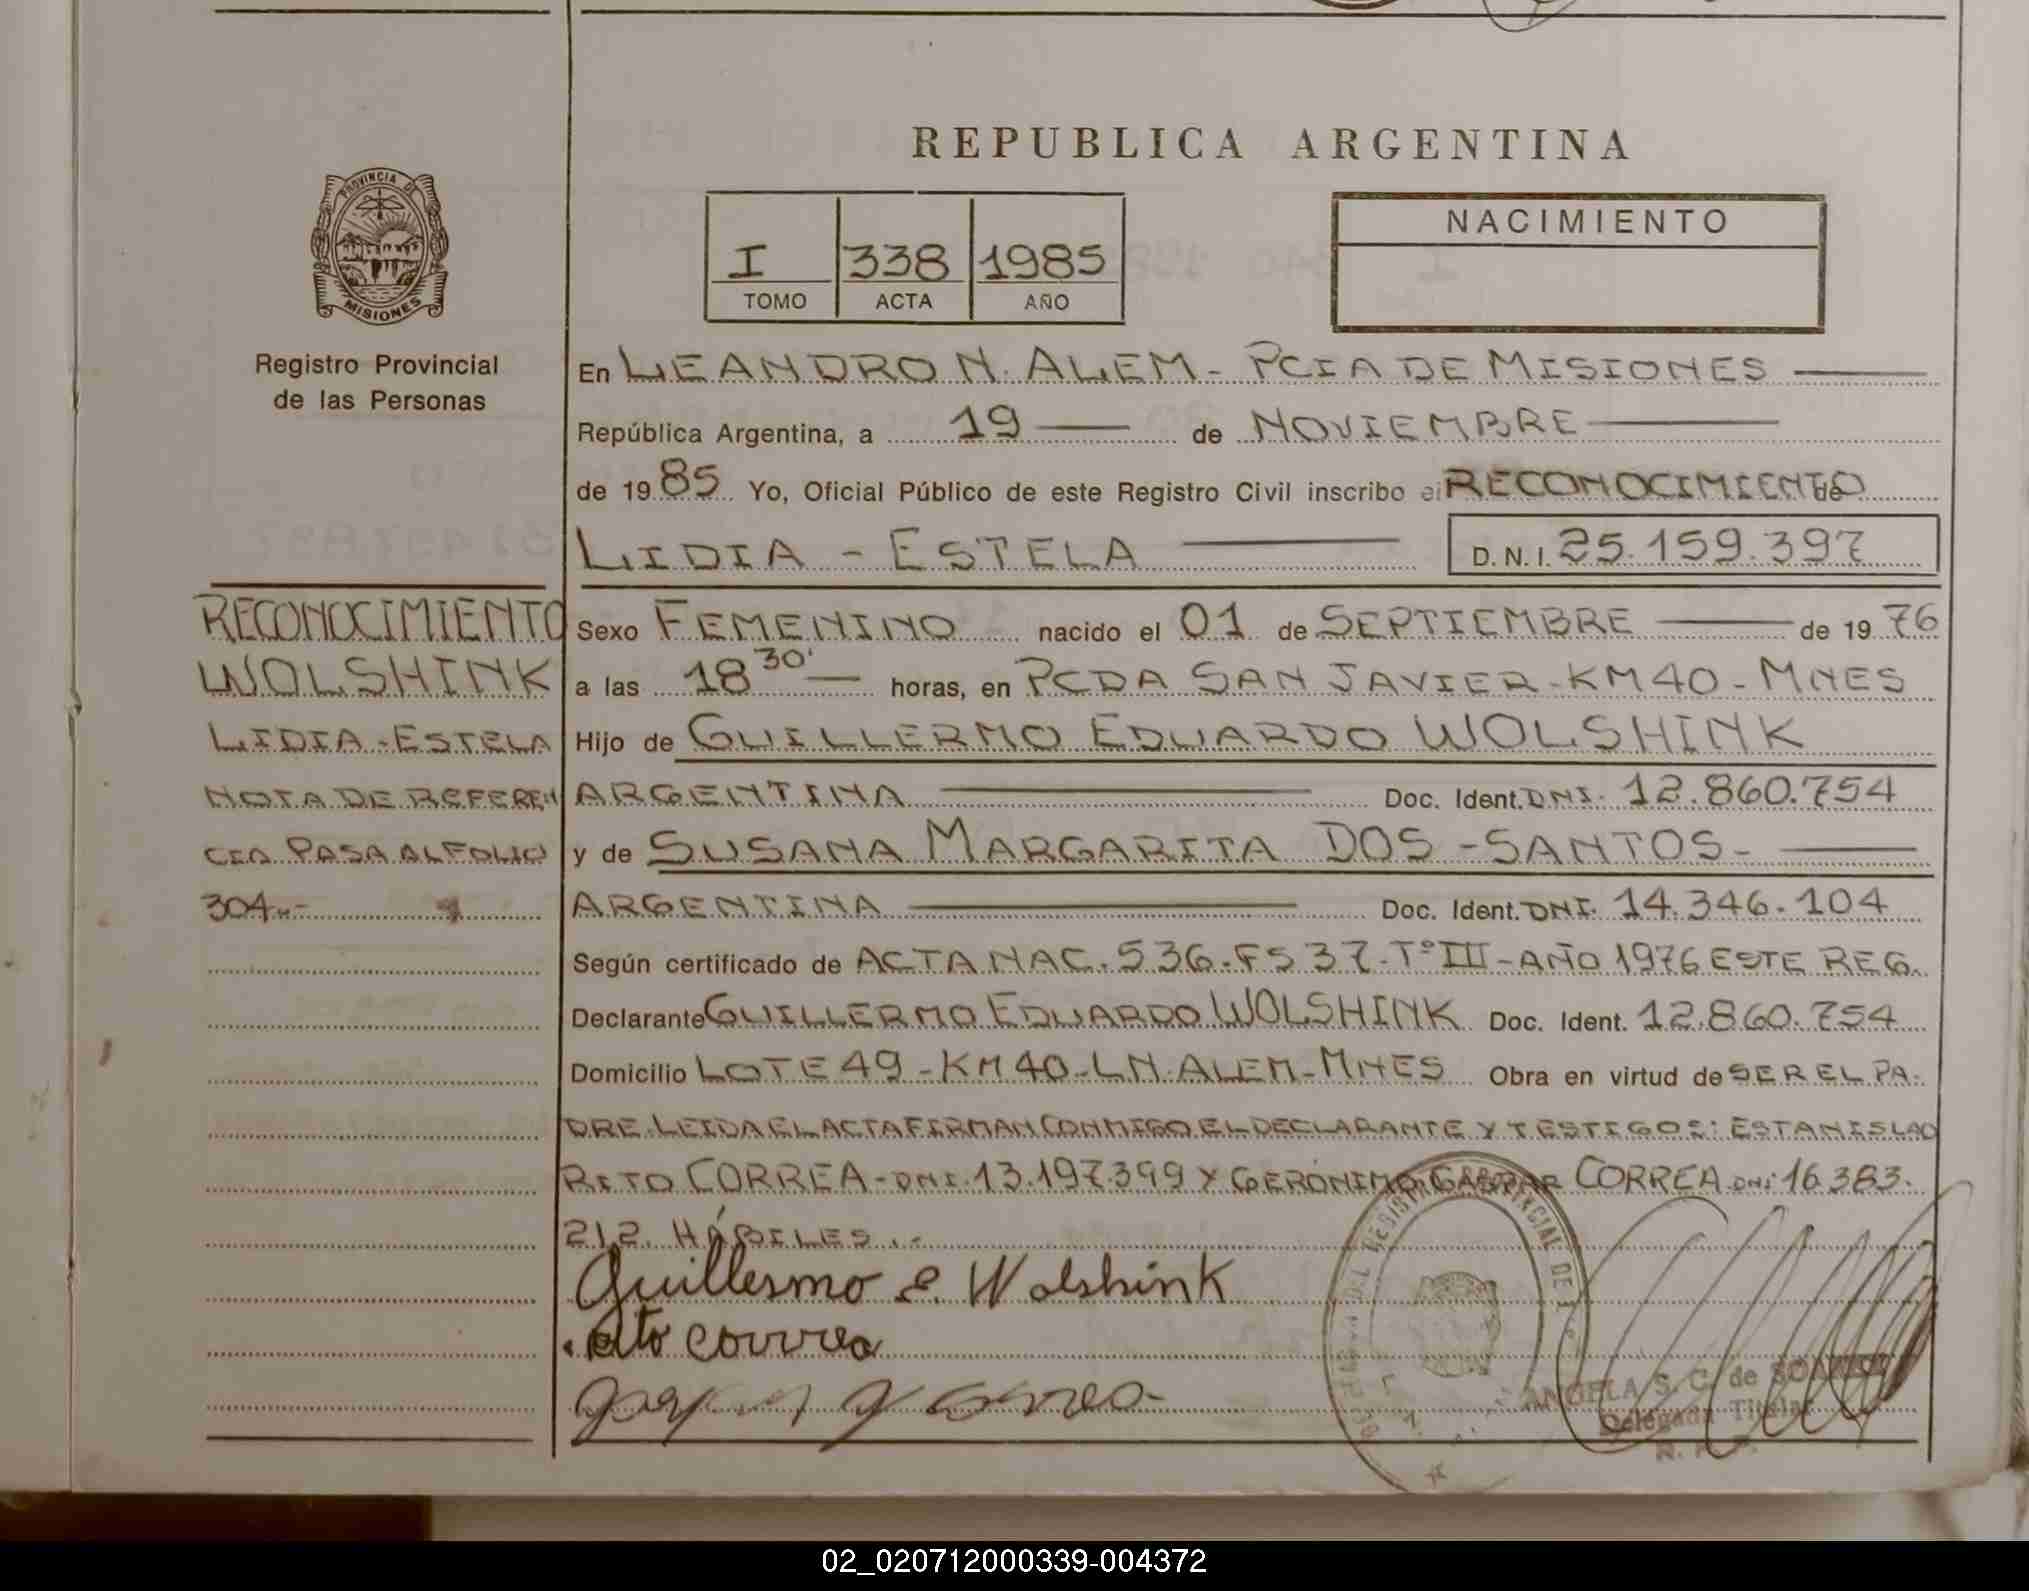 REPUBLICA ARGENTINA
PROVINCIA DE
MISIONES
Registro Provincial
de las Personas
I 338 1985
TOMO ACTA AÑO
NACIMIENTO
En LEANDRO N. ALEM - PCIA DE MISIONES
República Argentina, a 19 de NOVIEMBRE
de 1985 Yo, Oficial Público de este Registro Civil inscribo el RECONOCIMIENTO de
LIDIA - ESTELA D.N.I. 25.159.397
RECONOCIMIENTO
WOLSHINK
LIDIA - ESTELA
NOTA DE REFEREN
CIA PASA AL FOLIO
304.-
Sexo FEMENINO nacido el 01 de SEPTIEMBRE de 1976
a las 18 30' horas, en PCDA SAN JAVIER - KM 40 - MNES
Hijo de GUILLERMO EDUARDO WOLSHINK
ARGENTINA Doc. Ident. DNI. 12.860.754
y de SUSANA MARGARITA DOS - SANTOS -
ARGENTINA Doc. Ident. DNI. 14.346.104
Según certificado de ACTA NAC. 536. FS 37. Tº III - AÑO 1976 ESTE REG.
Declarante GUILLERMO EDUARDO WOLSHINK Doc. Ident. 12.860.754
Domicilio LOTE 49 - KM 40 - LN. ALEM - MNES Obra en virtud de SER EL PA-
DRE. LEIDA EL ACTA FIRMAN CONMIGO EL DECLARANTE Y TESTIGOS: ESTANISLAO
RITO CORREA - DNI. 13.197.399 Y GERÓNIMO GASPAR CORREA DNI: 16.383.
212. HÁBILES..-
Guillermo E. Wolshink
Rito Correa
Correa
ANGELA S. C. de
Delegada Titular
02_020712000339-004372